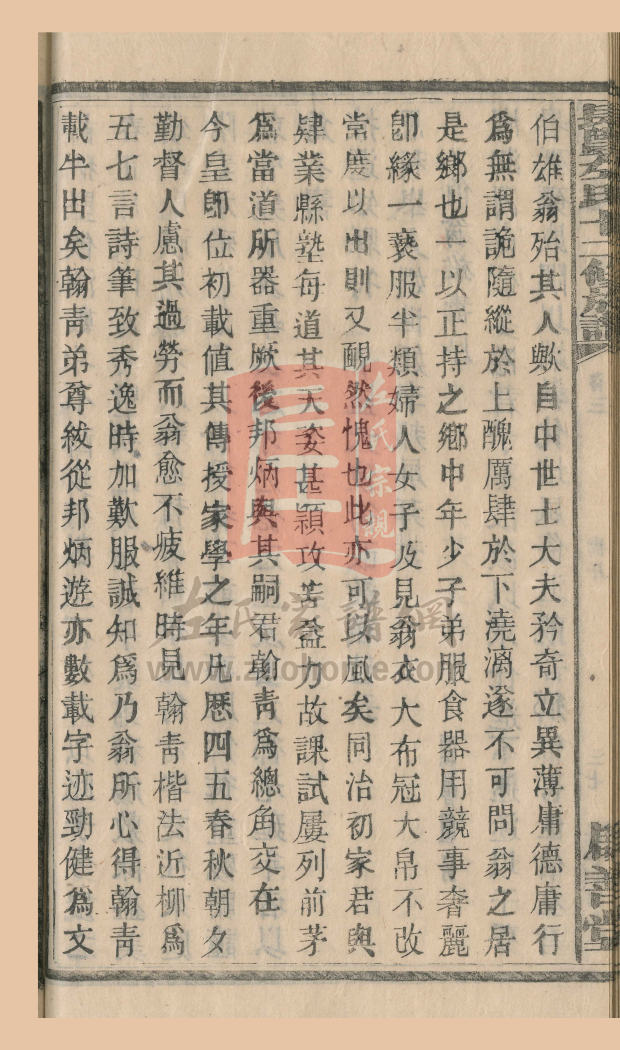 伯雄翁殆其人歟自中世士大夫矜奇立異薄庸德庸行
爲無謂詭隨縱於上醜厲肆於下澆漓遂不可問翁之居
是鄉也一以正持之鄉中年少子弟服食器用競事奢麗
卽緣一褻服半類婦人女子及見翁衣大布冠大帛不改
當度以出則又靦然愧也此亦可以風矣同治初家君與
肄業縣塾每道其天姿甚穎攻苦益力故課試屢列前茅
爲當道所器重厥後邦炳與其嗣君翰靑爲總角交在
今皇卽位初載值其傳授家學之年凡歷四五春秋朝夕
勤督人慮其過勞而翁愈不疲維時見翰靑楷法近柳爲
五七言詩筆致秀逸時加歎服誠知爲乃翁所心得翰靑
載牛出矣翰靑弟尊紱從邦炳遊亦數載字迹勁健爲文
左氏十二修族譜
善堂
左氏宗親
左氏宗譜網